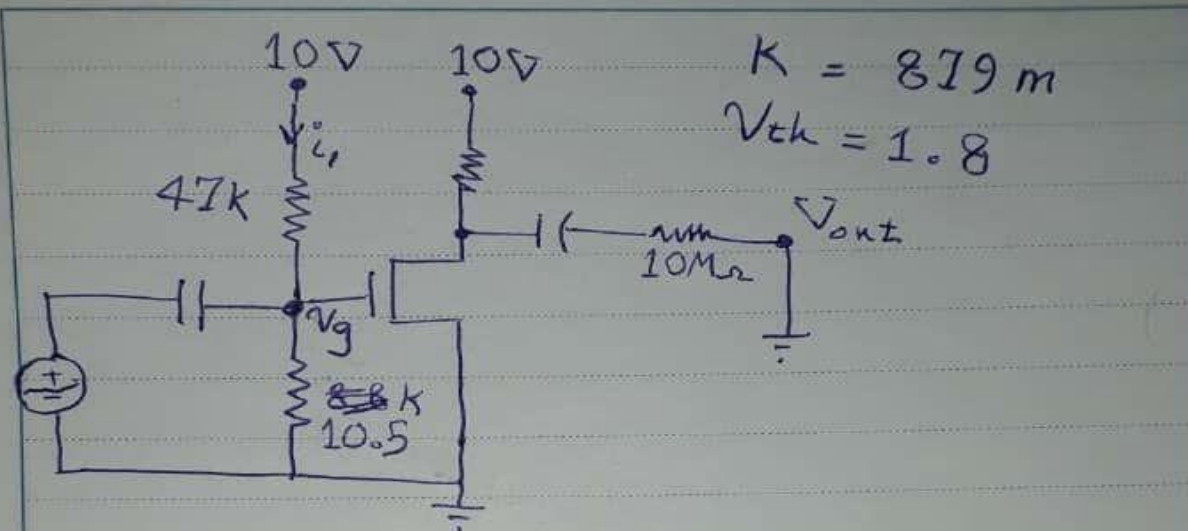 10V 10V
K = 879 m
Vth = 1.8
i1
47k
Vout
10MΩ
Vg
K
10.5